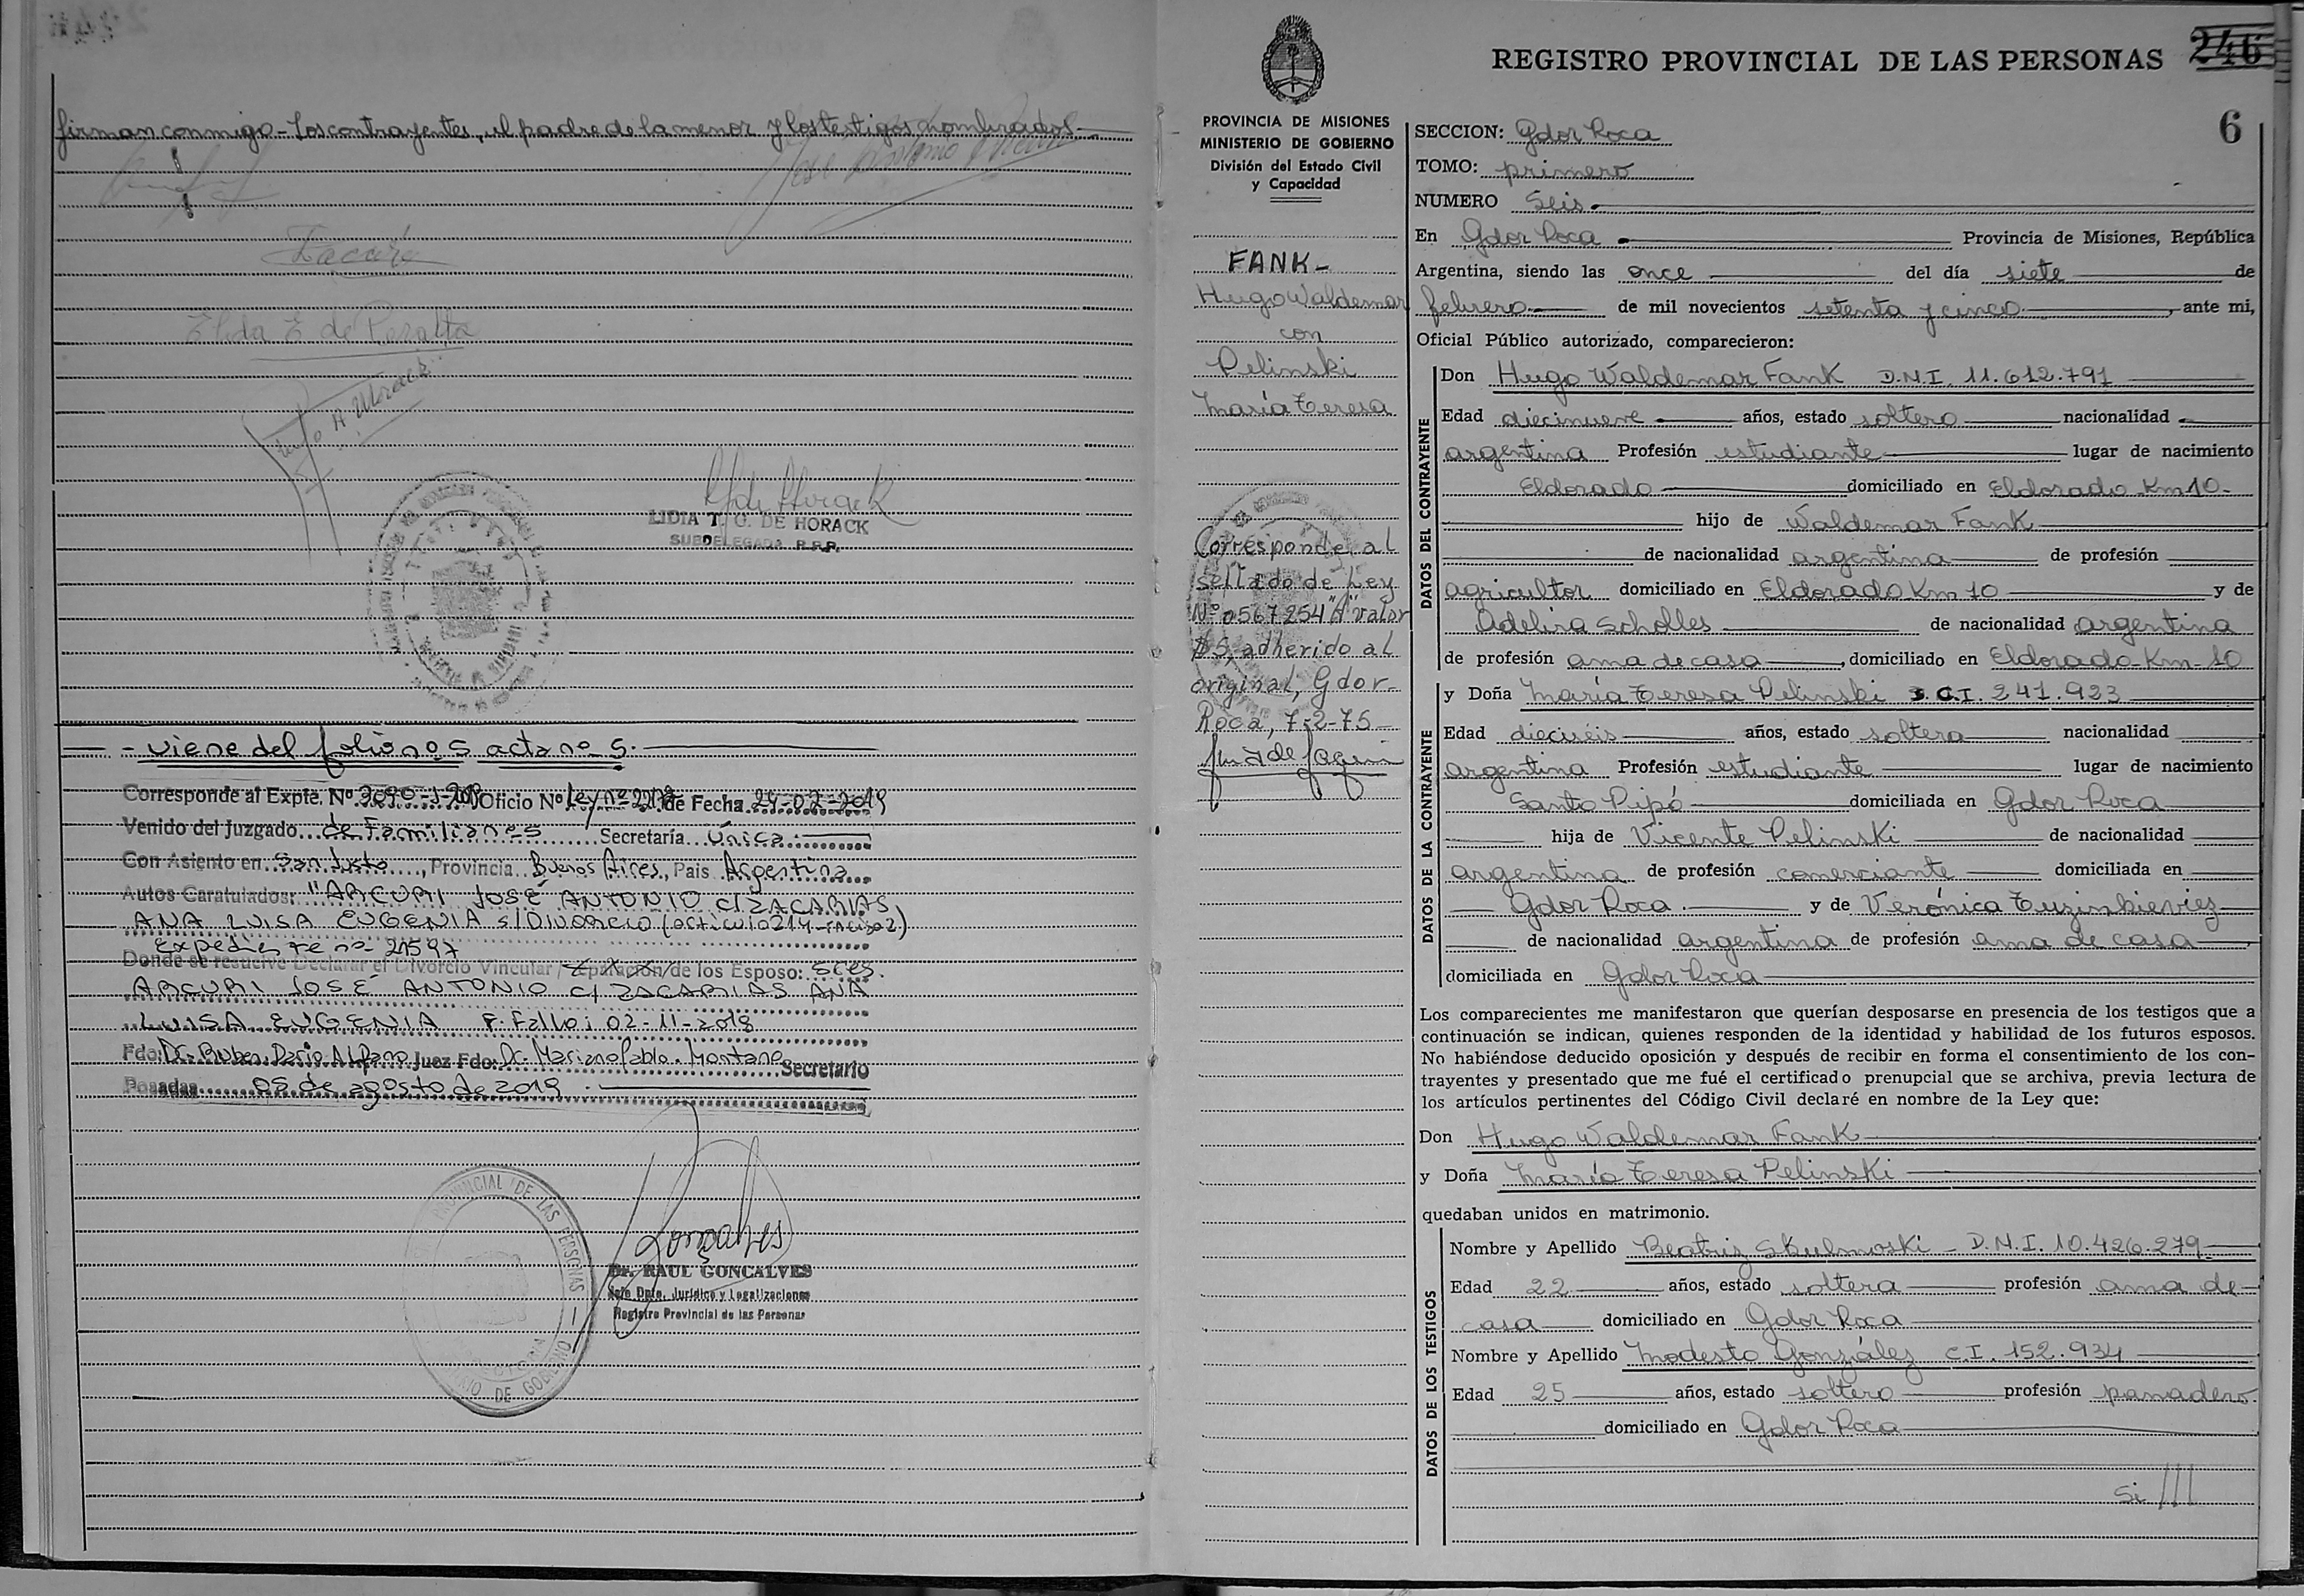 firman conmigo - Los contrayentes, el padre de la menor y los testigos nombrados.
Elda E de Peralta
LIDIA T. O. DE HORACK
SUBDELEGADA R.P.P.
- viene del folio nº 5 acta nº 5.
Corresponde al Expte. Nº Oficio Nº Ley nº de Fecha
Venido del Juzgado de Familia nº 5 Secretaría Única.
Con Asiento en San Justo, Provincia Buenos Aires, Pais Argentina
Autos Caratulados: "ARCURI JOSÉ ANTONIO C/ ZACARIAS
ANA LUISA EUGENIA S/DIVORCIO (artículo 214 - inciso 2)
Expediente nº 21597
Donde se resuelve Declarar el Divorcio Vincular / de los Esposo: sres.
ARCURI JOSÉ ANTONIO C/ ZACARIAS ANA
LUISA EUGENIA F. Fallo: 02-11-2018
Fdo: Dr. Ruben Dario Juez Fdo: Dr. Mariano Pablo Montano Secretario
Posadas 05 de agosto de 2019.
PROVINCIAL DE LAS PERSONAS
DE GOBIERNO
Gonçalves
Dr. RAUL GONCALVES
Jefe Dpto. Jurídico y Legalizaciones
Registro Provincial de las Personas
REGISTRO PROVINCIAL DE LAS PERSONAS 246
6
PROVINCIA DE MISIONES
MINISTERIO DE GOBIERNO
División del Estado Civil
y Capacidad
FANK -
Hugo Waldemar
con
Pelinski
María Teresa
Corresponde al
sellado de Ley
Nº 0567254 "A" valor
$5, adherido al
original, Gdor.
Roca, 7-2-75
SECCION: Gdor Roca
TOMO: primero
NUMERO Seis.
En Gdor Roca Provincia de Misiones, República
Argentina, siendo las once del día siete de
febrero de mil novecientos setenta y cinco, ante mi,
Oficial Público autorizado, comparecieron:
DATOS DEL CONTRAYENTE
Don Hugo Waldemar Fank D.N.I. 11.612.791
Edad diecinueve años, estado soltero nacionalidad
argentina Profesión estudiante lugar de nacimiento
Eldorado domiciliado en Eldorado Km 10-
hijo de Waldemar Fank
de nacionalidad argentina de profesión
agricultor domiciliado en Eldorado Km 10 y de
Adelira Scholles de nacionalidad argentina
de profesión ama de casa, domiciliado en Eldorado-Km-10
DATOS DE LA CONTRAYENTE
y Doña María Teresa Pelinski C.I. 241.923
Edad dieciséis años, estado soltera nacionalidad
argentina Profesión estudiante lugar de nacimiento
Santo Pipó domiciliada en Gdor Roca
hija de Vicente Pelinski de nacionalidad
argentina de profesión comerciante domiciliada en
Gdor Roca. y de Verónica Tuzinkieviez
de nacionalidad argentina de profesión ama de casa,
domiciliada en Gdor Roca
Los comparecientes me manifestaron que querían desposarse en presencia de los testigos que a
continuación se indican, quienes responden de la identidad y habilidad de los futuros esposos.
No habiéndose deducido oposición y después de recibir en forma el consentimiento de los con-
trayentes y presentado que me fué el certificado prenupcial que se archiva, previa lectura de
los artículos pertinentes del Código Civil declaré en nombre de la Ley que:
Don Hugo Waldemar Fank
y Doña María Teresa Pelinski
quedaban unidos en matrimonio.
DATOS DE LOS TESTIGOS
Nombre y Apellido Beatriz Skulmoski - D.N.I. 10.426.279
Edad 22 años, estado soltera profesión ama de
casa domiciliado en Gdor Roca
Nombre y Apellido Modesto González C.I. 152.934
Edad 25 años, estado soltero profesión panadero.
domiciliado en Gdor Roca
Si ///